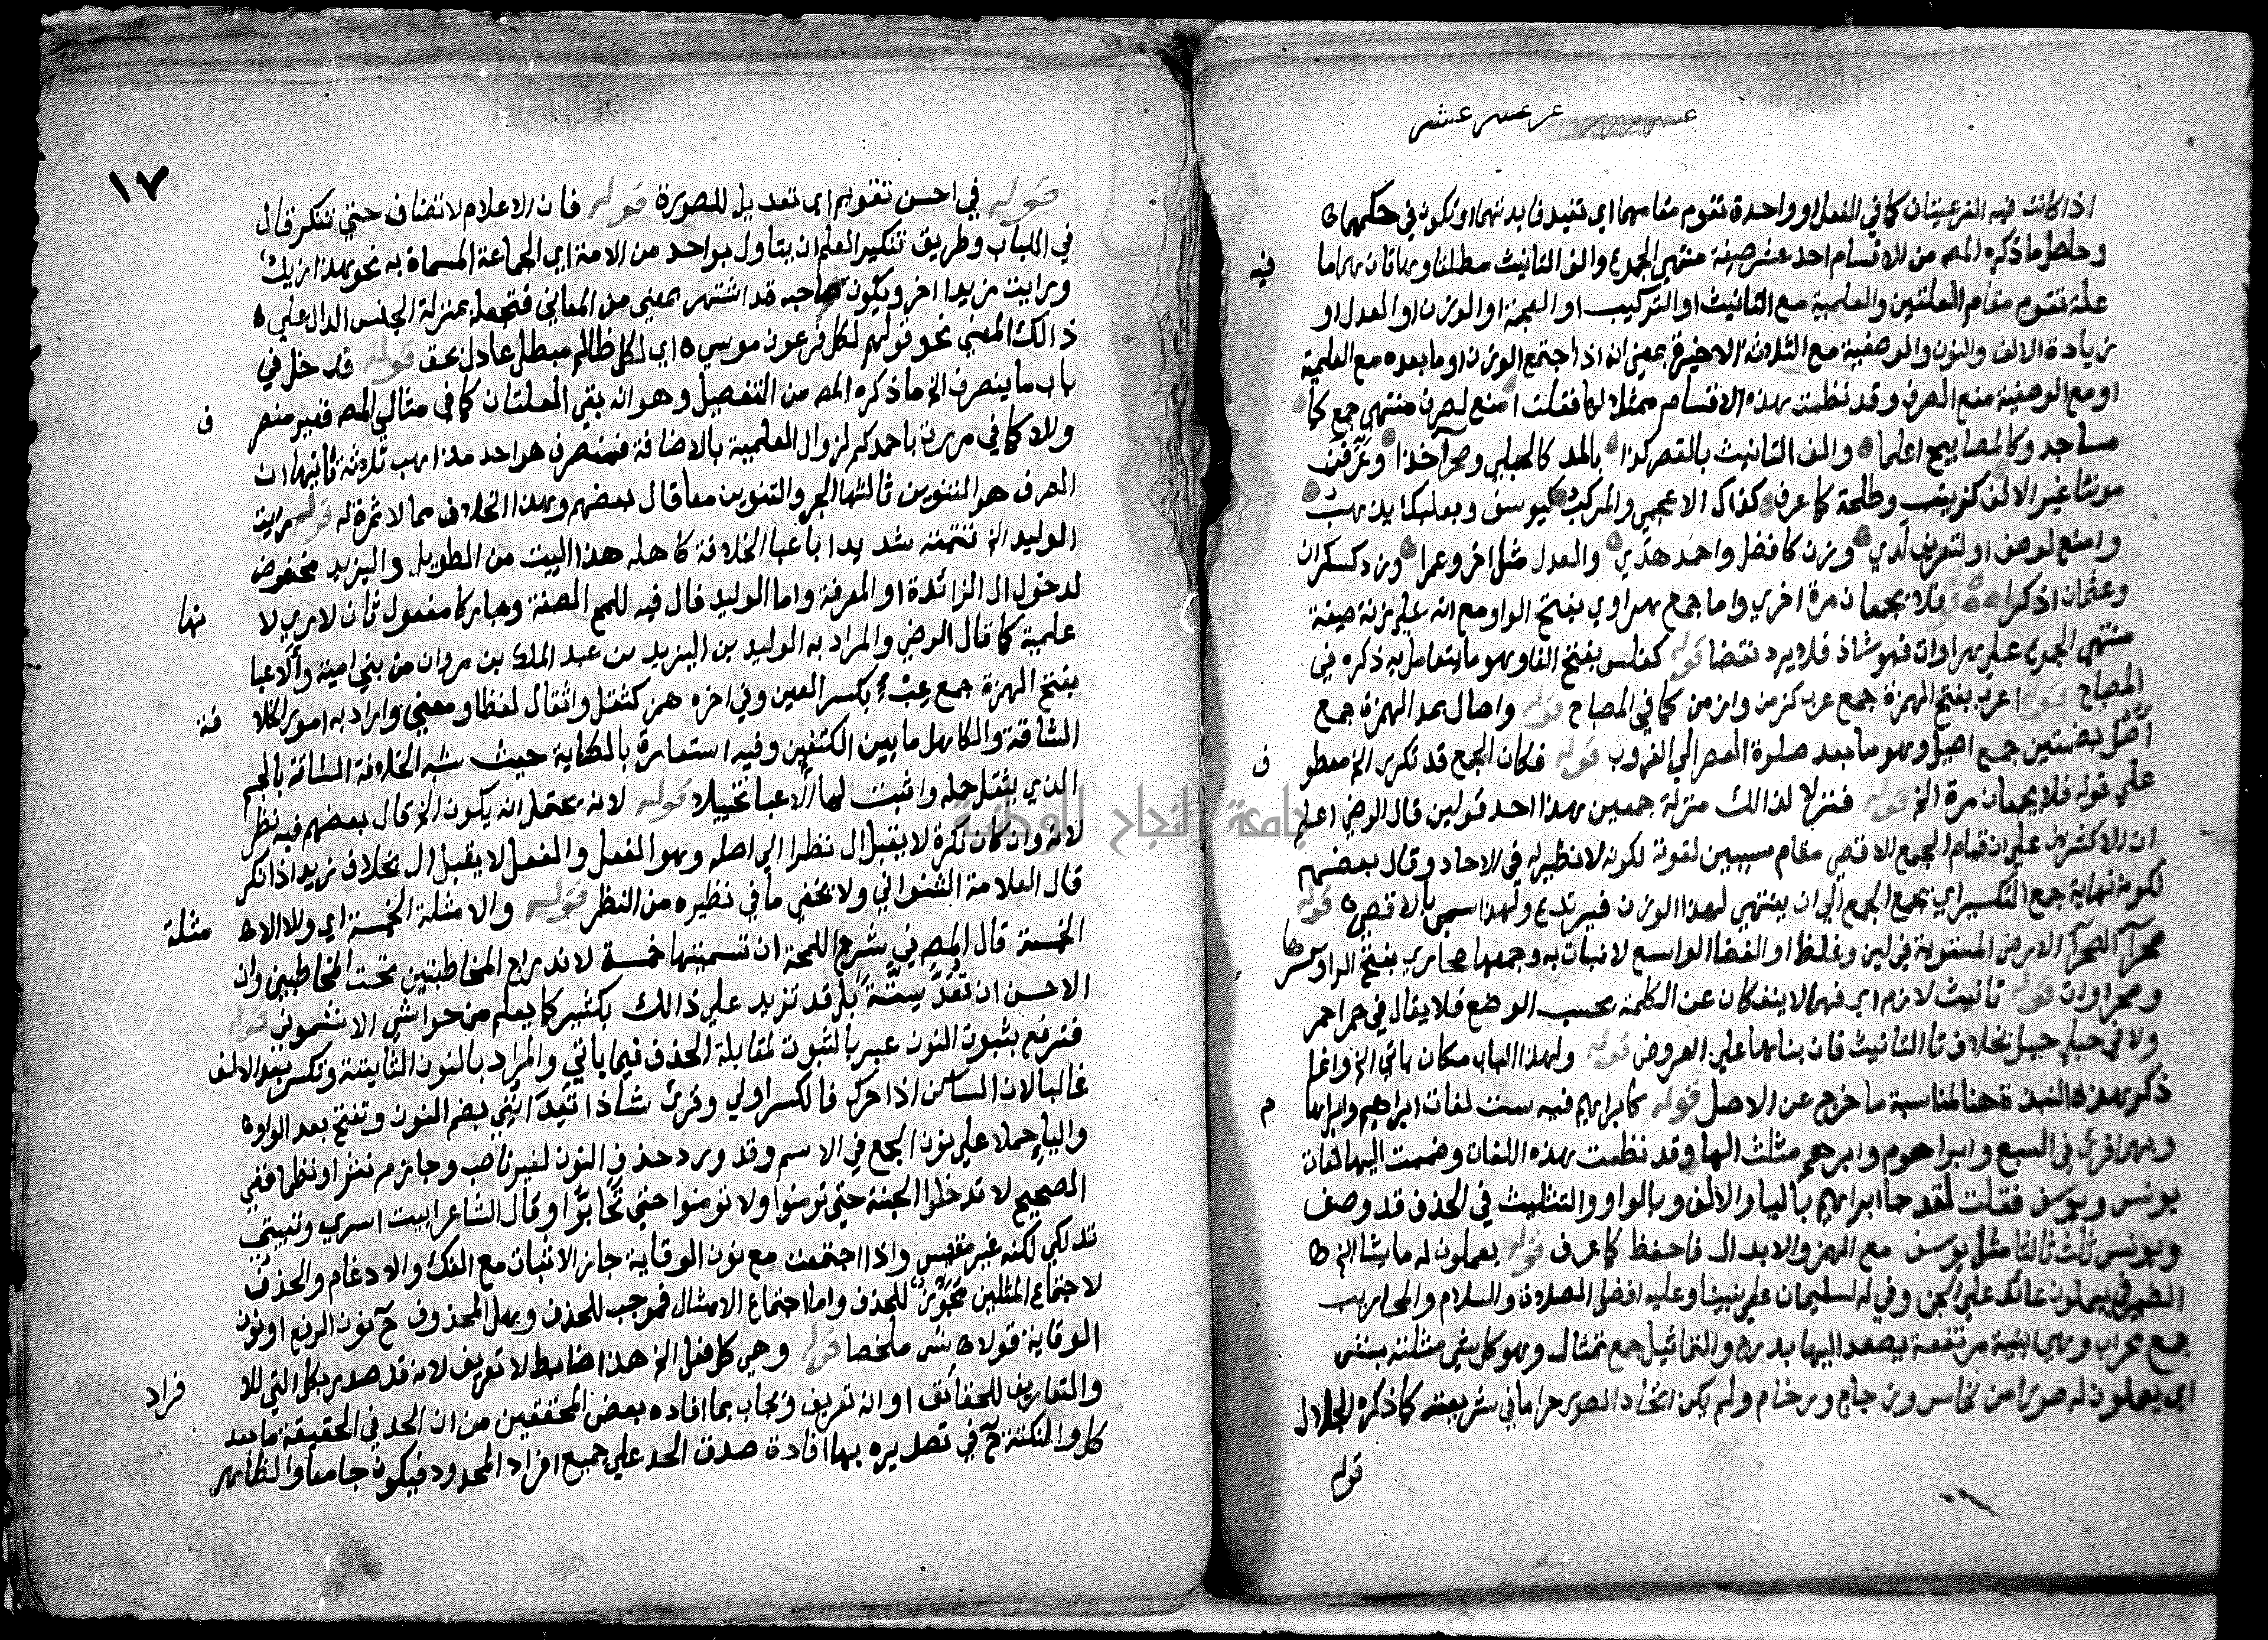 عشر عشر
اذا كانت فيه الفرعيتان كما في الفعل او واحدة تقوم مقامهما اي تفيد فايدتهما او تكون في حكمهما
وحاصل ما ذكره المص من الاقسام احد عشر صيغة منتهي الجموع والف التانيث مطلقا وهاتان هما ما فيه
علة تقوم مقام العلتين والعلمية مع التانيث او التركيب او العجمة او الوزن او العدل او
زيادة الالف والنون والوصفية مع الثلاثة الاخيرة بمعني انه اذا اجتمع الوزن او ما بعده مع العلمية
او مع الوصفية منع الصرف وقد نظمت هذه الاقسام ممثلا لها فقلت امنع لصرف منتهي جمع كما
مساجد وكالمصابيح اعلما والف التانيث بالقصر كذا بالمد كالحبلي وصحرآ خذا وعرفن
مونثا غير الالف كزينب وطلحة كما عرف كذاك الاعجمي والمركب كيوسف وبعلبك يذهب
وامنع لوصف او لتعريف لدي وزن كافضل واحمد هدي والعدل مثل اخر وعمرا وزد كسكران
وعثمان اذكرا قوله فلا يجمعان مرة اخري واما جمع هراوي بفتح الواو مع انه علي زنة صيغة
منتهي الجموع علي هراوات فهو شاذ فلا يرد نقضا قوله كفلس بفتح الفا وهو ما يتعامل به ذكره في
المصباح قوله اعرب بفتح الهمزة جمع عرب كزمن وازمن كما في المصباح قوله واصال بمد الهمزة جمع
اصل بضمتين جمع اصيل وهو ما بعد صلوة العصر الي الغروب قوله فكان الجمع قد تكرر الخ معطوف
علي قوله فلا يجمعان مرة الخ قوله فنزل لذالك منزلة جمعين هذا احد قولين قال الرضي اعلم
ان الاكثرين علي ان قيام الجمع الاقصي مقام سببين لقوته لكونه لا نظير له في الاحاد وقال بعضهم
لكونه نهاية جمع التكسير اي يجمع الجمع الي ان ينتهي لهذا الوزن فيرتدع ولهذا سمي بالاقصي قوله
صحرآ الصحرآ الارض المستوية في لين وغلظ او الفضا الواسع لا نبات به وجمعها صحاري بفتح الراو كسرها
وصحراوات قوله تانيث لازم اي فهما لا ينفكان عن الكلمة بحسب الوضع فلا يقال في حمرا حمر
ولا في حبلي حبل بخلاف تا التانيث فان بناها علي العروض قوله ولهذا الباب مكان ياتي الخ وانما
ذكر هذه النبذة هنا لمناسبة ما خرج عن الاصل قوله كابراهيم فيه ست لغات ابراهيم وابراهام
وبهما قرئ في السبع وابراهوم وابرهم مثلث الها وقد نظمت هذه اللغات وضممت اليها لغات
يونس ويوسف فقلت لقد جا ابراهيم باليا والالف وبالواو والتثليث في الحذف قد وصف
ويونس ثلث ثالثا مثل يوسف مع الهمز والابدال فاحفظ كما عرف قوله يعملون له ما يشا الخ
الضمير في يعملون عائد علي الجن وفي له لسليمان علي نبينا وعليه افضل الصلاة والسلام والمحاريب
جمع محراب وهي ابنية مرتفعة يصعد اليها بدرج والتماثيل جمع تمثال وهو كل شي مثلته بشئ
اي يعملون له صورا من نحاس وزجاج ورخام ولم يكن اتخاذ الصور حراما في شريعته كما ذكره الجلال
قوله
١٧
قوله في احسن تقويم اي تعديل للصورة قوله فان الاعلام لا تضاف حتي تنكر قال
في اللباب وطريق تنكير العلم ان يتاول بواحد من الامة اي الجماعة المسماة به نحو هذا زيد
ورايت زيدا اخر ويكون صاحبه قد اشتهر بمعني من المعاني فتجعله بمنزلة الجنس الدال علي
ذالك المعني نحو قولهم لكل فرعون موسي اي لكل ظالم مبطل عادل محق قوله قد دخل في
باب ما ينصرف الخ ما ذكره المص من التفصيل وهو انه بقي العلتان كما في مثالي المص فغير منصرف
والا كما في مررت باحمدكم لزوال العلمية بالاضافة فمنصرف هو احد مذاهب ثلاثة ثانيها ان
الصرف هو التنوين ثالثها الجر والتنوين معا قال بعضهم وهذا الخلاف مما لا ثمرة له قوله رايت
الوليد الخ تتمته شديدا باعبا الخلافة كاهله هذا البيت من الطويل واليزيد مخفوض
لدخول ال الزائدة او المعرفة واما الوليد فال فيه للمح الصفة ومباركا مفعول ثان لا رري لا نها
علمية كما قال الرضي والمراد به الوليد بن اليزيد بن عبد الملك بن مروان من بني امية والاعبا
بفتح الهمزة جمع عبئ بكسر العين وفي اخره همز كثقل واثقال لفظا ومعني واراد به امور الخلافة
الشاقة والكاهل ما بين الكتفين وفيه استعارة بالكناية حيث شبه الخلافة الشاقة بالجسم
الذي يثقل حمله واثبت لها الاعبا تخييلا قوله لانه يحتمل انه يكون الخ قال بعضهم فيه نظر
لانه وان كان نكرة لا يقبل ال نظرا الي اصله وهو الفعل والفعل لا يقبل ال بخلاف زيد اذا نكر
قال العلامة الشنواني ولا يخفي ما في نظيره من النظر قوله والامثلة الخمسة اي والا الامثلة
الخمسة قال المص في شرح اللمحة ان تسميتها خمسة لاندراج المخاطبتين تحت المخاطبين وان
الاحسن ان تعد ستة بل قد تزيد علي ذالك بكثير كما يعلم من حواشي الاشموني قوله
فترفع بثبوت النون عبر بالثبوت لمقابلة الحذف فيما ياتي والمراد بالنون الثابتة وتكسر بعد الالف
غالبا لان الساكن اذا حرك فالكسر اولي وقرئ شاذا تعدآنني بضم النون وتفتح بعد الواو
والياء حملا علي نون الجمع في الاسم وقد ورد حذف النون لغير ناصب وجازم نثرا ونظما ففي
الصحيح لا تدخلوا الجنة حتي تومنوا ولا تومنوا حتي تحابوا وقال الشاعر ابيت اسري وتبيتي
تدلكي لكنه غير مقيس واذا اجتمعت مع نون الوقاية جاز الاثبات مع الفك والادغام والحذف
لاجتماع المثلين مجوز للحذف واما اجتماع الامثال فموجب للحذف وهل المحذوف ح نون الرفع او نون
الوقاية قولان ش ملخصا قوله وهي كل فعل الخ هذا ضابط لا تعريف لانه قد صدر بكل التي للافراد
والتعاريف للحقائق او انه تعريف ويجاب بما افاده بعض المحققين من ان الحد في الحقيقة ما بعد
كل والنكتة ح في تصديره بها افادة صدق الحد علي جميع افراد المحدود فيكون جامعا والظاهر